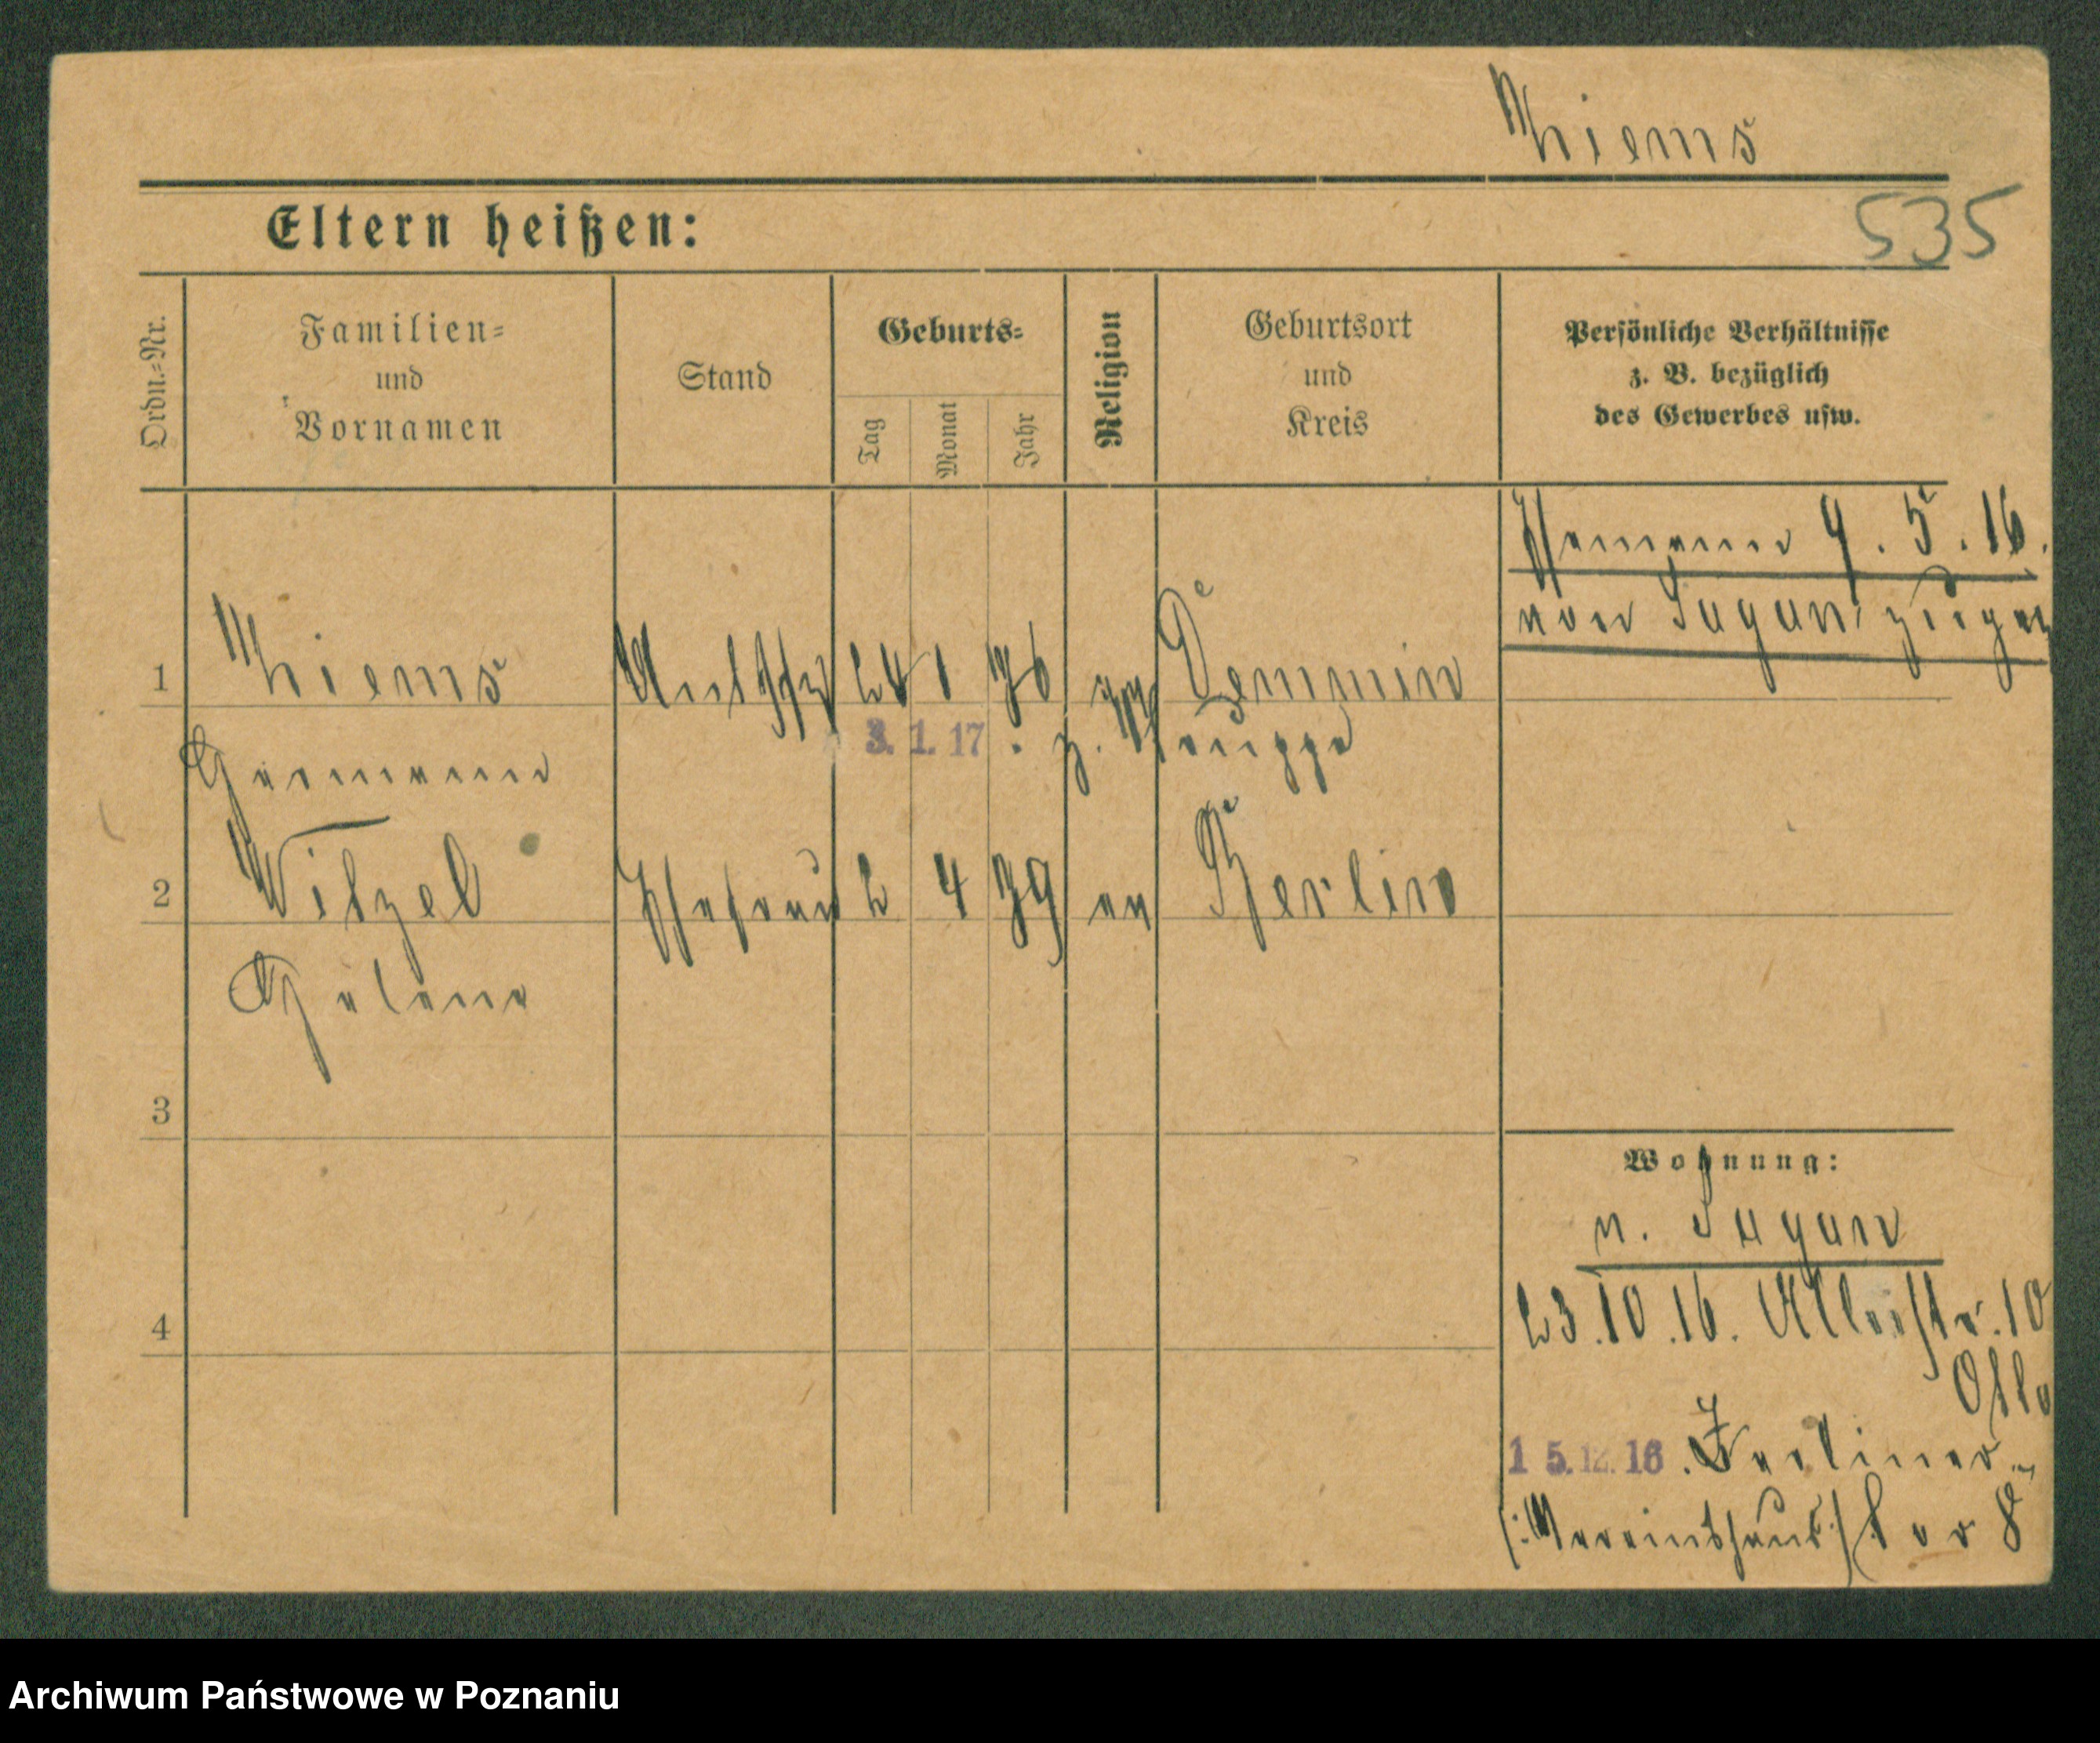 Thiems
Eltern heißen:
535
Ordn.-Nr.
Familien-
und
Vornamen
Stand
Geburts-
Tag
Monat
Jahr
Religion
Geburtsort
und
Kreis
Persönliche Verhältnisse
z. B. bezüglich
des Gewerbes usw.
Ehemann 9.5.16.
von Sagan zugez
1 Thiems 24 1 76 ev Demmin
Hermann 3. 1. 17. z. Truppe
2 Witzel Ehefrau 2 4 79 ev Berlin
Helene
3
Wohnung:
n. Sagan
4 23.10.16. 10
15.12.16. Berliner-
(:Vereinshaus:) tor 8
Archiwum Państwowe w Poznaniu